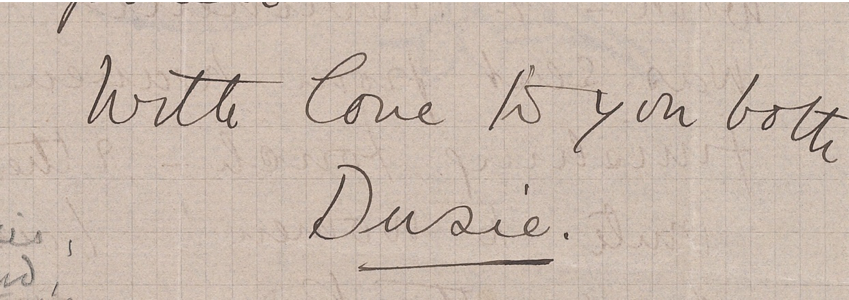 With love to you both
Dusie.